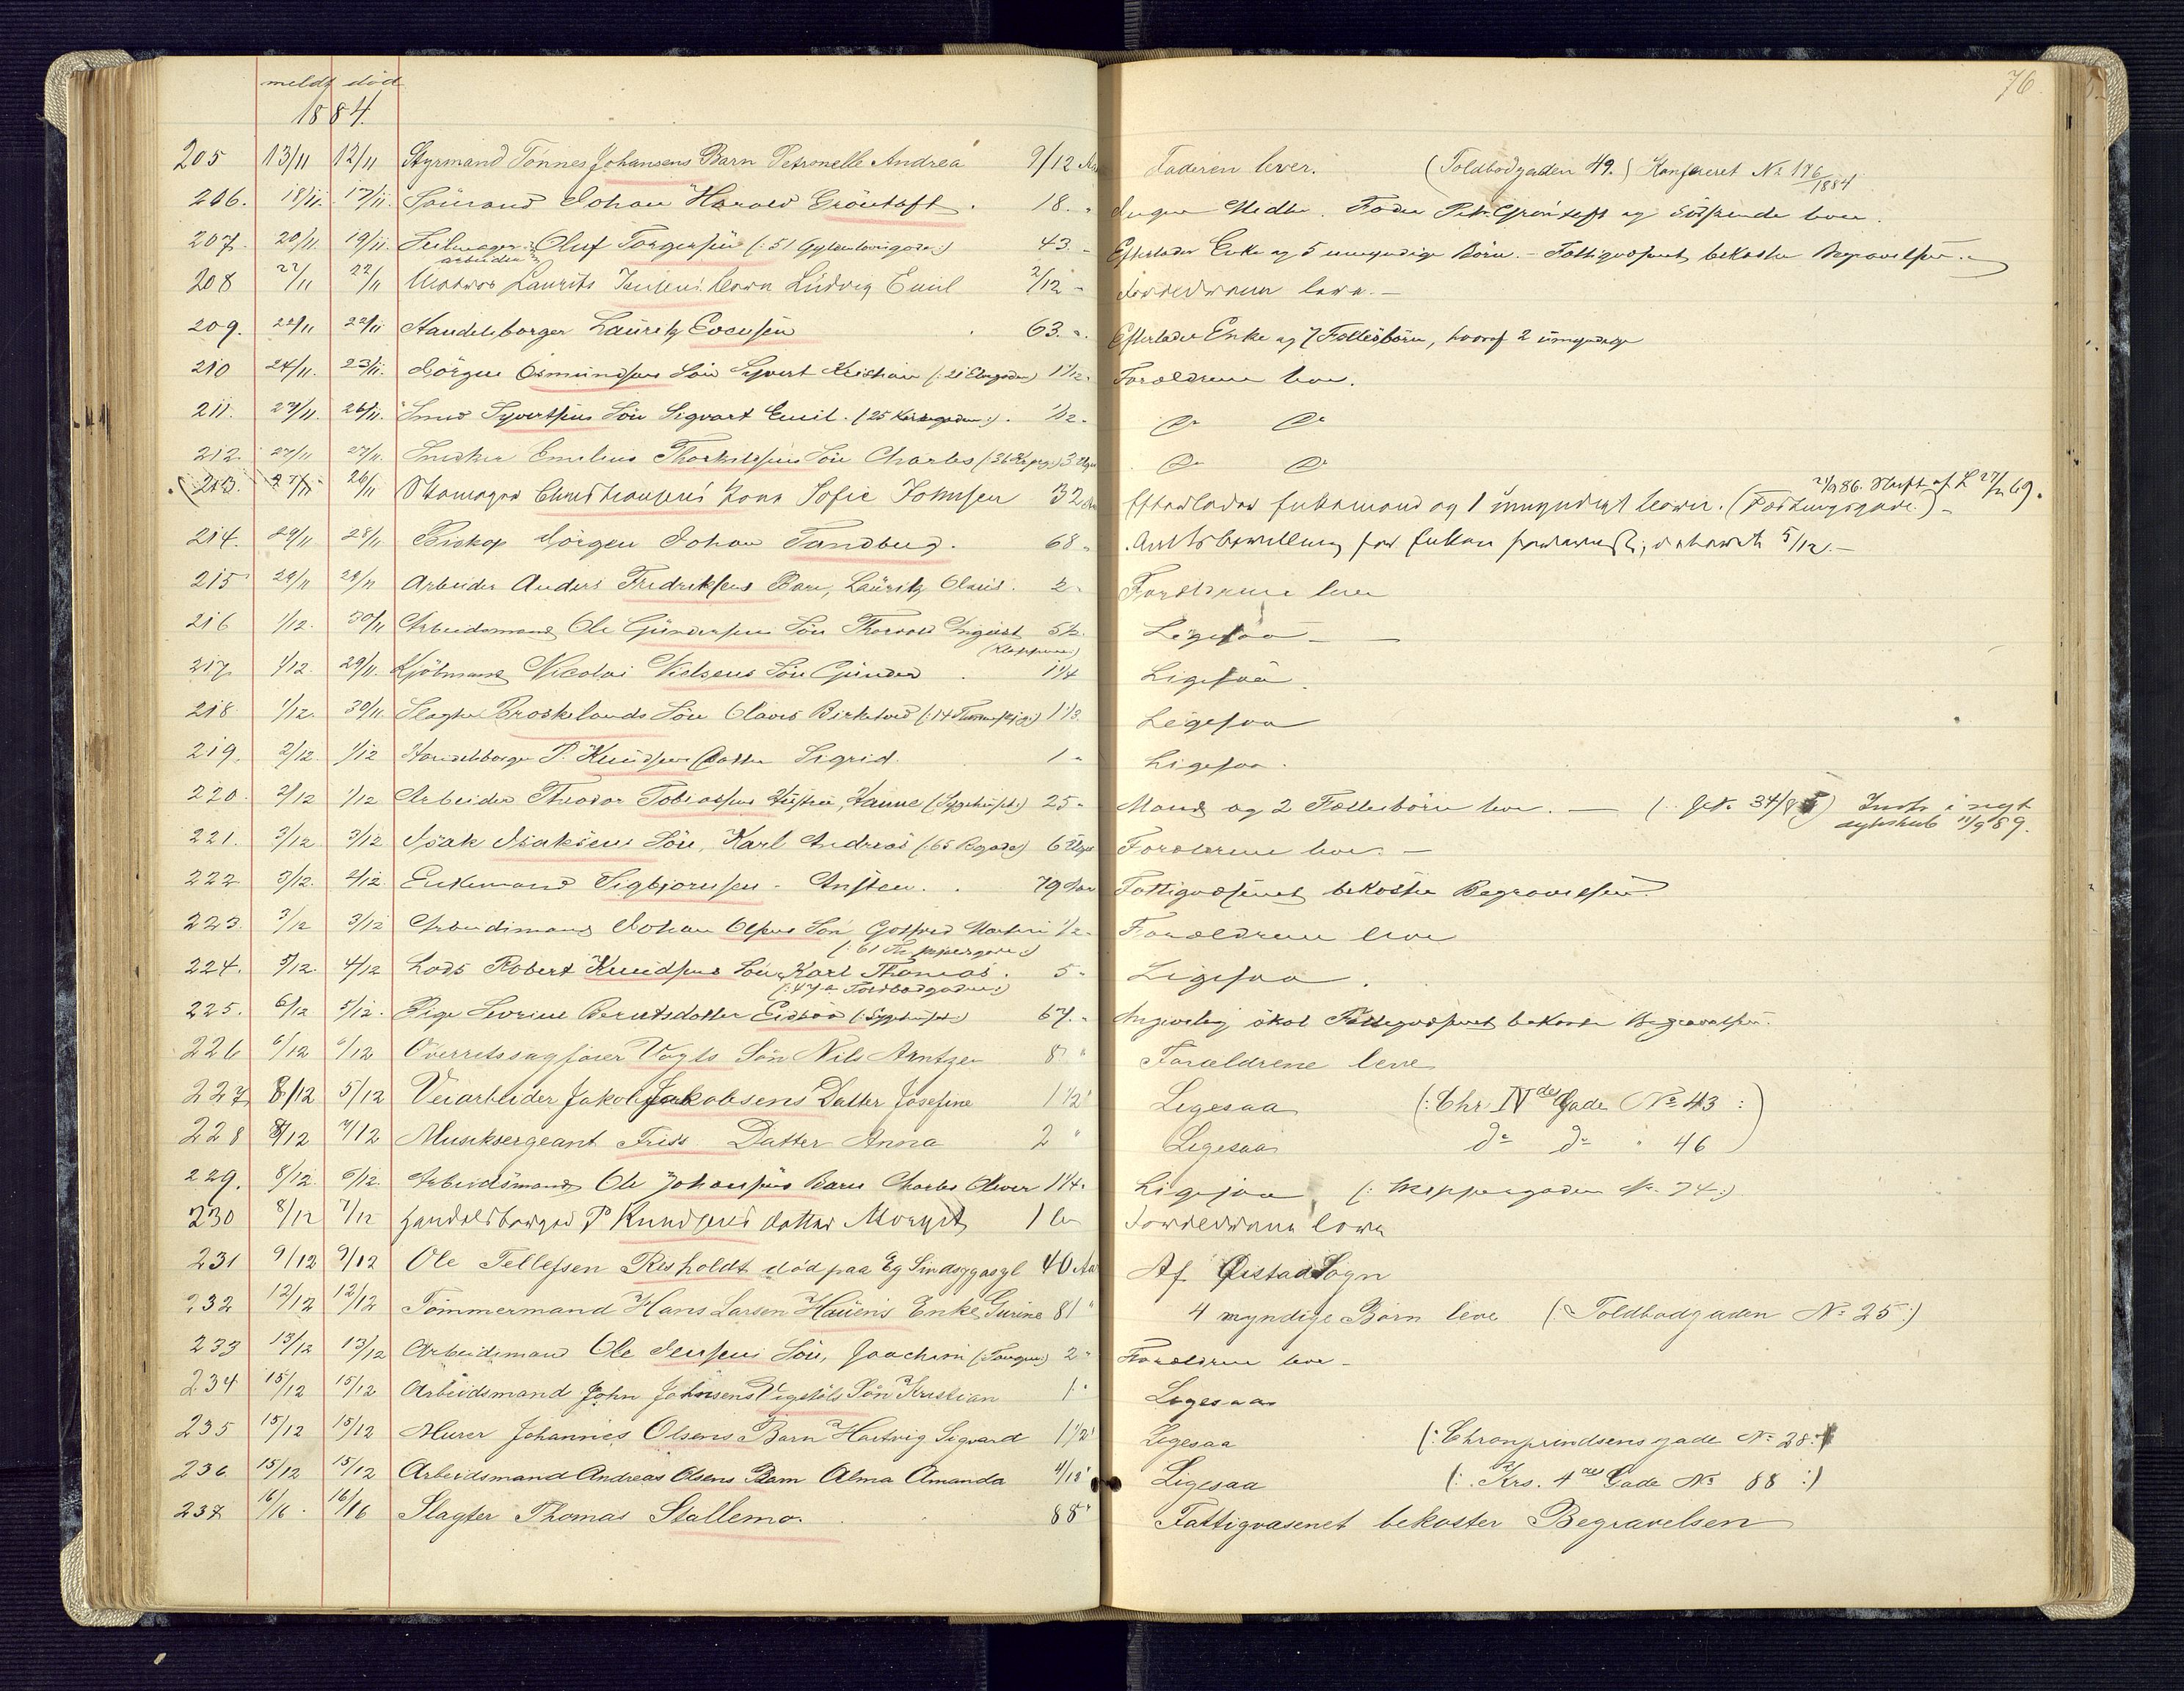 76.
meldt død
1884.
205 13/11 12/11 Styrmand Tönnes Johansens Barn Petronelle Andrea 9/12 Faderen lever. (Toldbodgaden 49.) Konfereret No 176/1884
206. 18/11. 17/11. Sömand Johan Harald Gröntoft. 18. " Ingen Midler. Fader Petr. Gröntoft og Södskende lever.
207. 20/11 19/11. Seilmager Oluf Torgersen (: 51 :) 43. " Efterlader Enke og 5 umyndige Börn. - Fattigvæsenet bekoster Begravelsen.
arbeider
208 22/11 22/11 Laurits Jensens barn Ludvig Emil 2/12 " Forældrene leve. -
209. 22/11 22/11 Handelsborger Lauritz Evensen 63. ". Efterlader Enke og 7 Fællesbörn, hvoraf 2 umyndige
210 24/11. 23/11. Jörgen Osmundsens Sön Syvert Kristian (: 21 ) 1 1/2 " Forældrene leve.
211. 27/11. 26/11. Smed Syvertsens Sön Sigvart Emil. (25 :). 1/2 " Do Do
212. 27/11 27/11. Snedker Emelius Thorkildsens Sön Charles (36 ) 3 Uger Do Do
213. 27/11 26/11 Christiansens kone Sofie Johnsen 32 Efterlader Enkemand og 1 umyndigt barn. (Festningsgade.) -
214. 29/11 28/11 Biskop Jörgen Johan Tandberg. 68 " Amtsbevilling for Enken , dateret 5/12. -
215 29/11 29/11 Arbeider Anders Fredriksens Barn, Lauritz Olaus. 2 " Forældrene leve
216 1/12. 30/11 Arbeidsmand Ole Gundersens Sön Thorvald 5 1/2. Ligesaa
217. 1/12. 29/11. Kjöbmand Nicolai Nielsens Sön Gunder 1 1/4 Ligesaa.
218 1/12. 30/11. Slagter Broskelands Sön Olaves (: 14 :) 1 1/3 Ligesaa
219. 2/12. 1/12 Handelsborger P. Knudsens Datter Sigrid. 1 " Ligesaa.
220. 2/12 1/12 Arbeider Theodor Tobiassens Hustru, Hanne (: Sygehuset :) 25 " Mand og 2 Fællesbörn leve. -
221. 3/12 3/12 Isak Isaksens Sön, Karl Andreas (: 65 ) 6 Uger Forældrene leve. -
222 3/12. 2/12. Enkemand Sigbjornsen - Ansten. 79 Aar Fattigvæsenet bekoster Begravelsen.
223. 3/12 3/12 Arbeidsmand Johan Olsens Sön Gotfred Martin 1/2 " Forældrene leve
224. 5/12. 4/12 Lods Robert Knudsens Sön Karl Thomas. 5 " Ligesaa.
(: 47 a Toldbodgaden :)
225. 6/12 5/12. Pige Severine Berntsdatter (: Sygehuset :) 67. " Fattigvæsenet bekoster Begravelsen.
226 6/12 6/12 Overretssagförer Vogts Sön Nils Arntzen 8 " Foræeldrene leve
227 8/12 5/12 Veiarbeider Jakob Jakobsens Datter Josefine 1 1/2 " Ligesaa (: Chr IVdes Gade No 43 :)
228 8/12 7/12 Musiksergeant Friis Datter Anna 2 " Ligesaa do do " 46
229. 8/12. 6/12. Arbeidsmand Ole Johansens Barn Charles Oliver 1 1/4. Ligesaa (: Skippergaden No 74 :)
230 8/12 7/12 handelsborger P Knudsens datter Margit 1 Forældrene leve
231 9/12 9/12 Ole Tellefsen Risholdt död paa Eg Sindsygasyl 40 Aar Af Øistad Sogn
232 12/12 12/12 Tömmermand Hans Larsen Enke Gurine 81 " 4 myndige Börn leve (: Toldbodgaden No 25 :)
233 13/12 13/12 Arbeidsmand Ole Jensens Sön, Joachim (: Tangen :) 2 " Forældrene leve -
234 15/12 15/12 Arbeidsmand John Johnsens Vigstöls Sön Kristian 1 " Ligesaa
235 15/12 15/12 Murer Johannes Olsens Barn Hartvig Sigvard 1 1/2 " Ligesaa (: Chronprindsensgade No 28 :)
236 15/12 15/12 Arbeidsmand Andreas Olsens Barn Alma Amanda Ligesaa (: Krs. 4des Gade No 88 :)
237 16/16 16/16 Slagter Thomas Stallemo. 88 " Fattigvæsenet bekoster Begravelsen